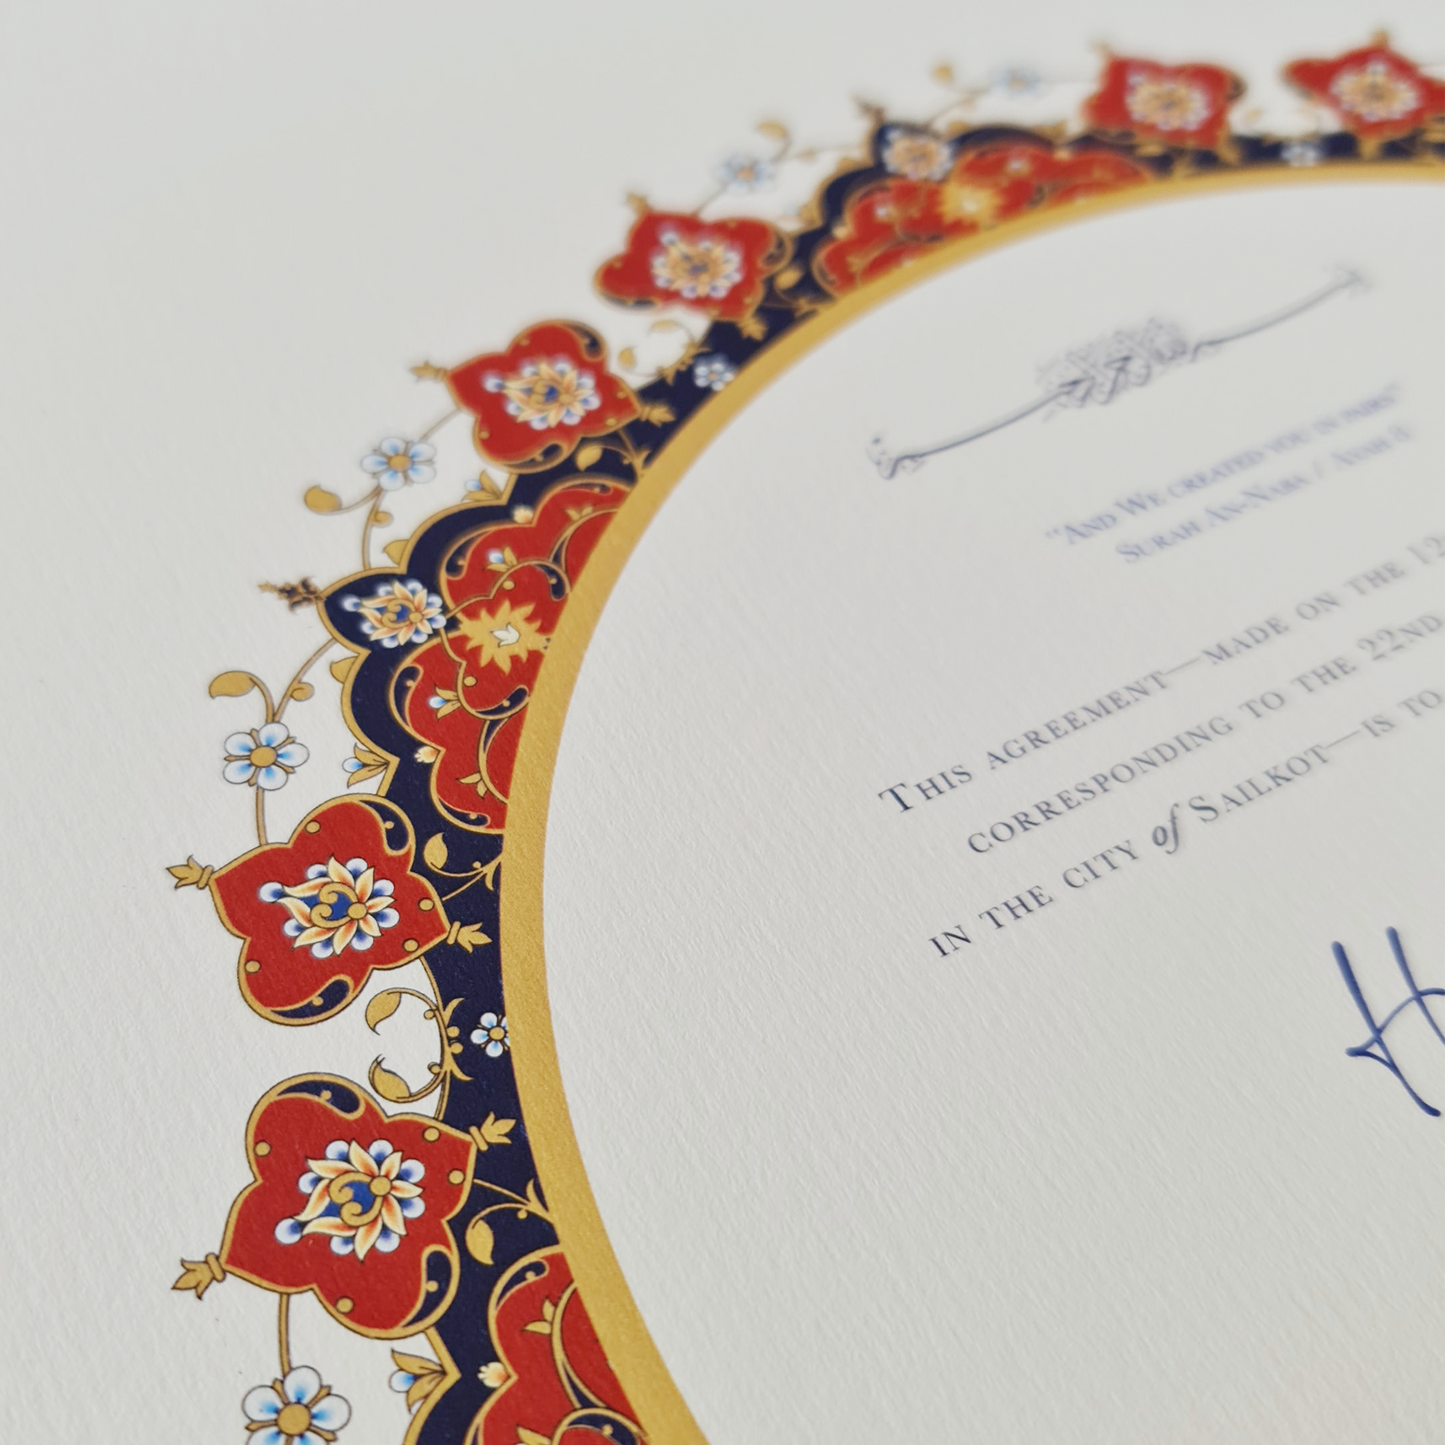 "And We created you in pairs"
Surah An-Naba / Ayah 8
This agreement—made on the 12
corresponding to the 22nd
in the city of Sailkot—is to
H